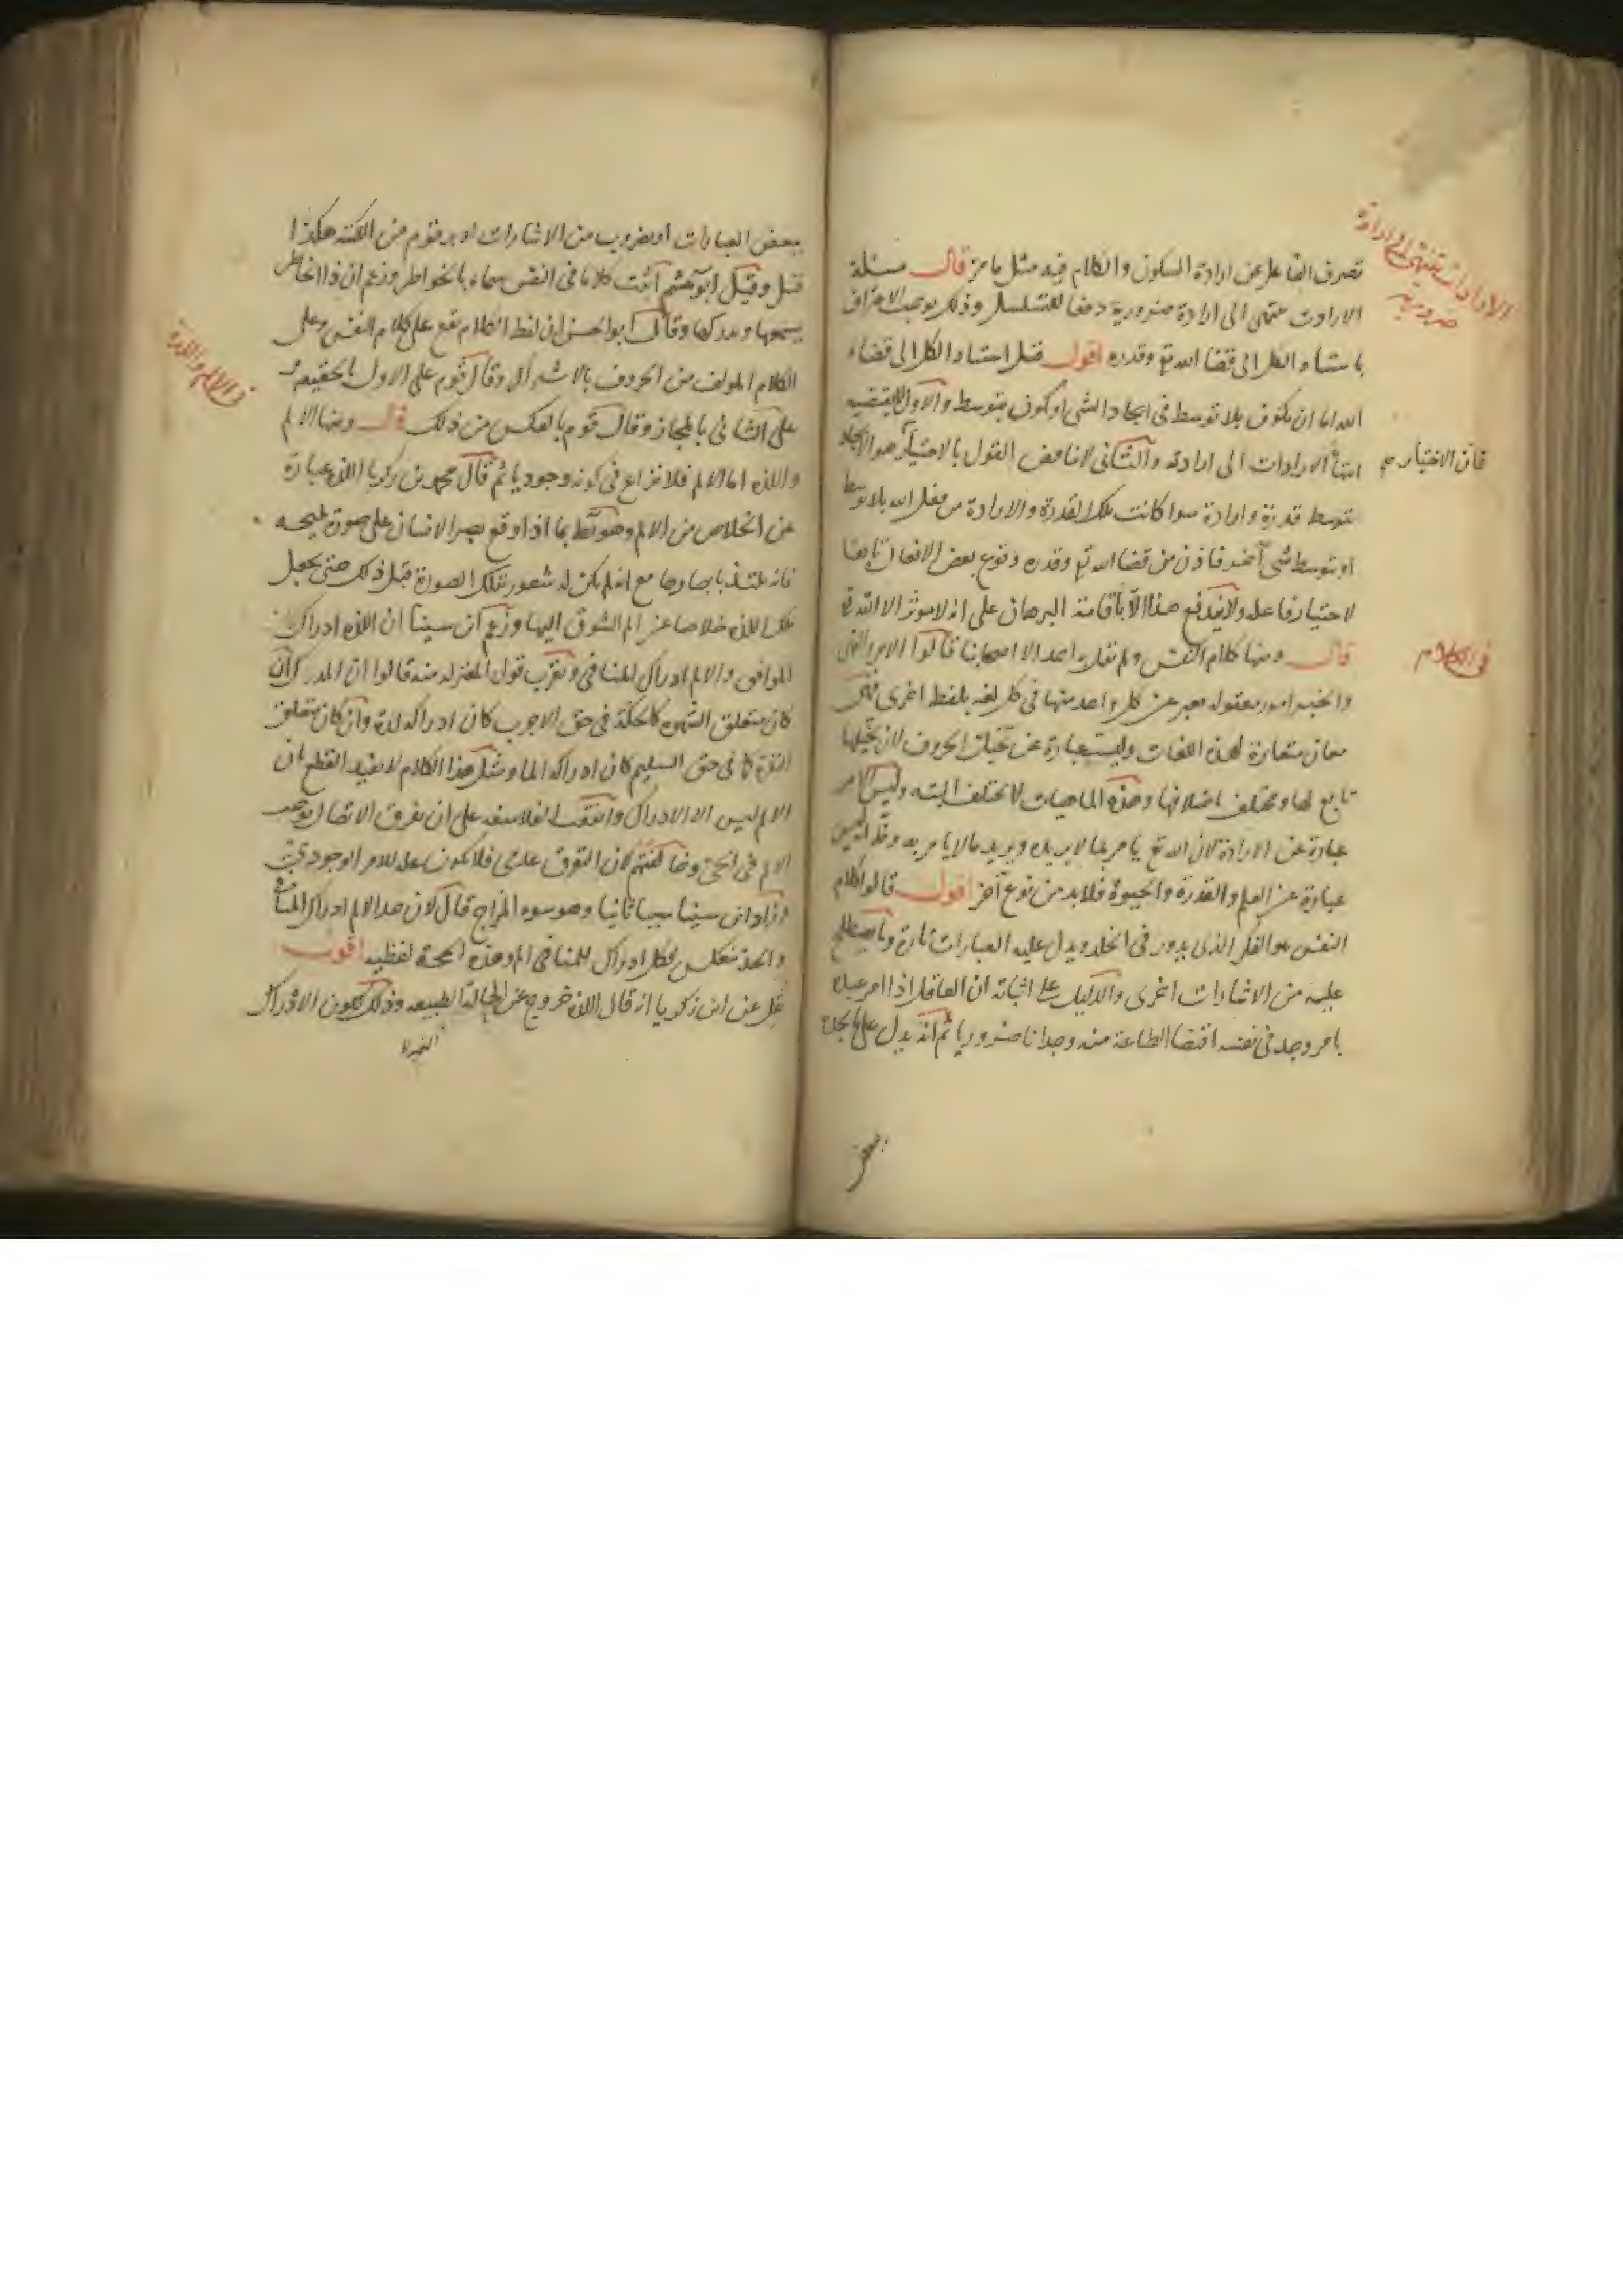 تصرف الفاعل عن ارادة السكون والكلام فيه مثل ما مرّ قال مسئلة
الارادات تنتهى الى ارادة ضرورية دفعا للتسلسل وذلك يوجب الاعتراف
باستناد الكل الى قضا الله تع وقدره اقول قيل استناد الكل الى قضاء
الله اما ان يكون بلا توسط فى ايجاد الشى او يكون بتوسط والاول لا يقتضيه
انتهاء الارادات الى ارادته والثانى لا يناقض القول بالاختيار هو الايجاد
بتوسط قدرة وارادة سوا كانت تلك القدرة والارادة من فعل الله بلا توسط
او بتوسط شى آخر فاذن من قضا الله تع وقدره وقوع بعض الافعال تابعا
لاختيار فاعله ولا يندفع هذا الا باقامة البرهان على انه لا موثر الا الله تع
قال ومنها كلام النفس ولم يقل به احد الا اصحابنا قالوا الامر والنهى
والخبر امور معقوله يعبر عن كل واحد منها فى كل لغه بلفظ اخرى فهى
معان متغايرة لهذه اللغات وليست عبارة عن تخيل الحروف لان تخيلها
تابع لها ومختلف باختلافها وهذه الماهيات لا تختلف البته وليس الامر
عبارة عن الارادة لان الله تع يامر بما لا يريده ويريد ما لا يامر به وظ انه ليس
عبارة عن العلم والقدرة والحيوة فلا بد من نوع آخر اقول قالوا كلام
النفس هو الفكر الذى يدور فى الخلد ويدل عليه العبارات تارة وما يصطلح
عليه من الاشارات اخرى والدليل على اثباته ان العاقل اذا امر عبده
بامر وجد فى نفسه اقتضا الطاعة منه وجدانا ضروريا ثم انه يدل على ما يجده
بعض
الارادات تنتهى الى ارادة
ضرورية
فان الاختيار
فى الكلام
ببعض العبارات او بضروب من الاشارات او برقوم من الكتبه هكذا
قيل وقيل ابو هاشم اثبت كلاما فى النفس سماه بالخواطر وزعم ان ذا الخاطر
يسمعها ويدركها وقال ابو الحسن ان لفظ الكلام يقع على كلام النفس وعلى
الكلام المولف من الحروف بالاشتراك وقال قوم على الاول بالحقيقه و
على الثانى بالمجاز وقال قوم بالعكس من ذلك قال ومنها الالم
واللذه اما الالم فلا نزاع فى كونه وجوديا ثم قال محمد بن زكريا اللذه عبارة
عن الخلاص من الالم وهو بط بما اذا وقع بصر الانسان على صورة مليحه
فانه يلتذ بابصارها مع انه لم يكن له شعور بتلك الصورة قبل ذلك حتى يجعل
تلك اللذه خلاصا عن الم الشوق اليها وزعم ابن سينا ان اللذه ادراك
الموافق والالم ادراك المنافى ويقرب قول المعتزله منه قالوا ان المدرك ان
كان متعلق الشهوه كالحكة فى حق الاجرب كان ادراكه لذة وان كان متعلق
النفرة كما فى حق السليم كان ادراكه الما ومثل هذا الكلام لا يفيد القطع بان
الالم ليس الا الادراك واتفقت الفلاسفه على ان تفرق الاتصال يوجب
الالم فى الحى وخالفتهم لان التفرق عدمى فلا يكون عله للامر الوجودى
وزاد ابن سينا سببا ثانيا وهو سوء المزاج قال لان حد الالم ادراك المنافى
والحد منعكس فكل ادراك للمنافى الم وهذه الحجة لفظيه اقول
نقل عن ابن زكريا انه قال اللذه خروج عن الحالة الطبيعه وذلك لكون الادراك
فى الالم واللذة